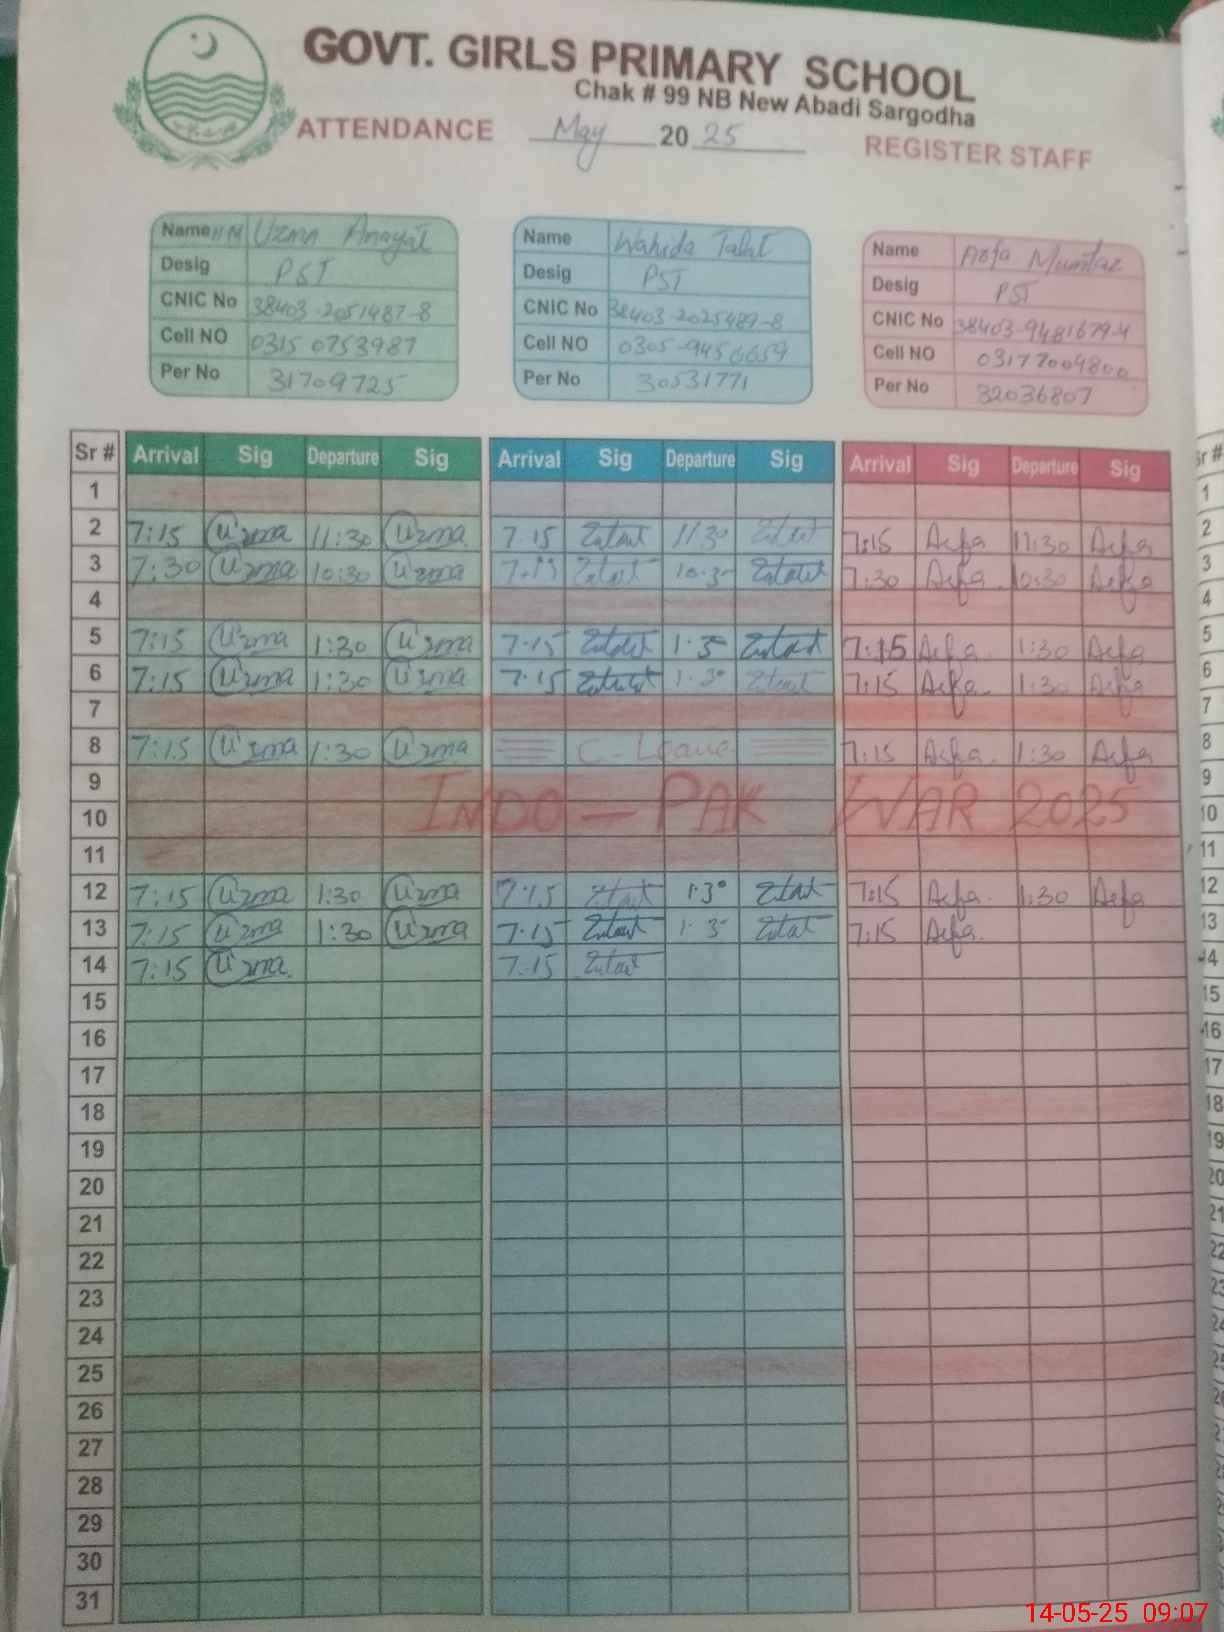 GOVT. GIRLS PRIMARY SCHOOL
Chak # 99 NB New Abadi Sargodha
ATTENDANCE May 2025 REGISTER STAFF
Name HM Uzma Anayat
Desig PST
CNIC No 38403-2051487-8
Cell NO 0315 0753987
Per No 31709725
Name Wahida Talat
Desig PST
CNIC No 38403-2025489-8
Cell NO 0305-9456659
Per No 30531771
Name Arfa Mumtaz
Desig PST
CNIC No 38403-9481679-4
Cell NO 03177004800
Per No 32036807
Sr # Arrival Sig Departure Sig Arrival Sig Departure Sig Arrival Sig Departure Sig
1
2 7:15 Uzma 11:30 Uzma 7.15 11 30 7:15 Arfa 11:30 Arfa
3 7:30 Uzma 10:30 Uzma 10.30 7:30 Arfa 10:30 Arfa
4
5 7:15 Uzma 1:30 Uzma 7.15 1.30 7:15 Arfa 1:30 Arfa
6 7:15 Uzma 1:30 Uzma 7.15 1.30 7:15 Arfa 1:30 Arfa
7
8 7:15 Uzma 1:30 Uzma C-Leave 7:15 Arfa 1:30 Arfa
9
INDO-PAK WAR 2025
10
11
12 7:15 Uzma 1:30 Uzma 7.15 1.30 7:15 Arfa 1:30 Arfa
13 7:15 Uzma 1:30 Uzma 7.15 1.30 7:15 Arfa
14 7:15 Uzma 7.15
15
16
17
18
19
20
21
22
23
24
25
26
27
28
29
30
31
14-05-25 09:07